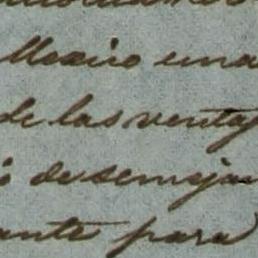 Mexico una
de las ventaj
ó de semejan
ante para